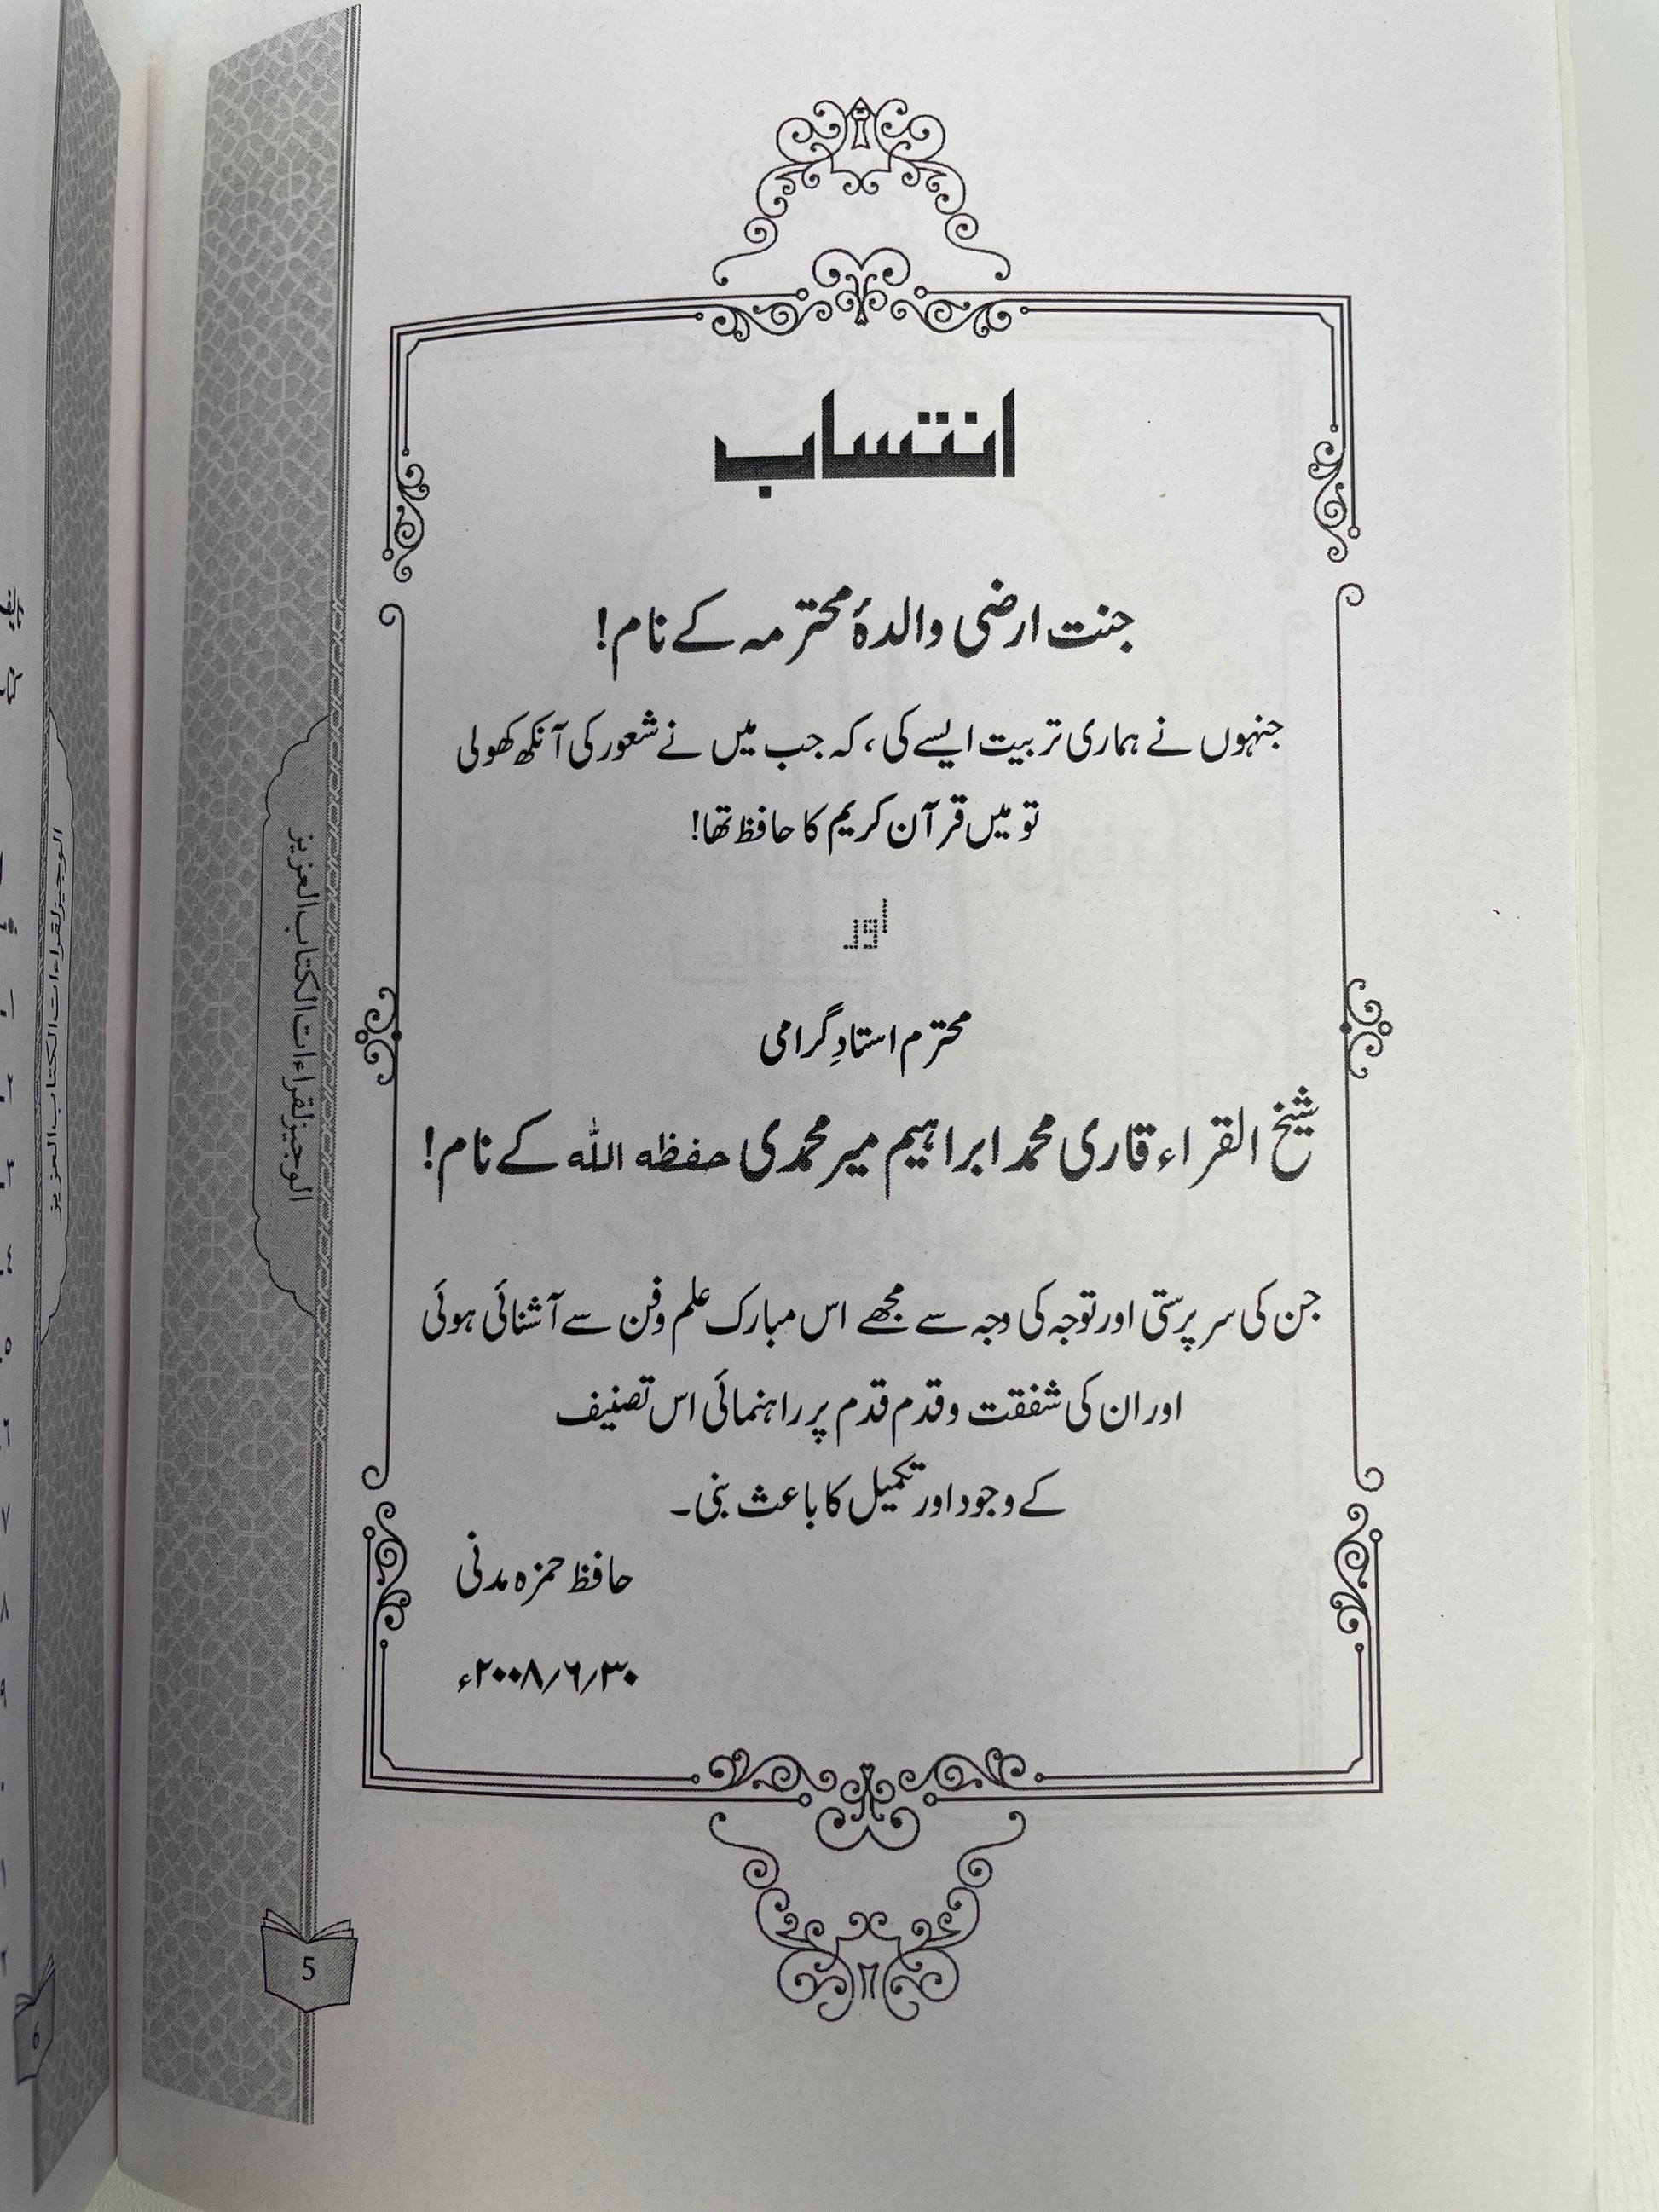 انتساب
جنت ارضی والدۂ محترمہ کے نام!
جنہوں نے ہماری تربیت ایسے کی، کہ جب میں نے شعور کی آنکھ کھولی
تو میں قرآن کریم کا حافظ تھا!
اور
محترم استادِ گرامی
شیخ القراء قاری محمد ابراہیم میر محمدی حفظه الله کے نام!
جن کی سرپرستی اور توجہ کی وجہ سے مجھے اس مبارک علم و فن سے آشنائی ہوئی
اور ان کی شفقت و قدم قدم پر راہنمائی اس تصنیف
کے وجود اور تکمیل کا باعث بنی۔
حافظ حمزہ مدنی
۳۰/٦/۲۰۰۸ء
الوجیز لقراءات الکتاب العزیز
5
الوجیز لقراءات الکتاب العزیز
6